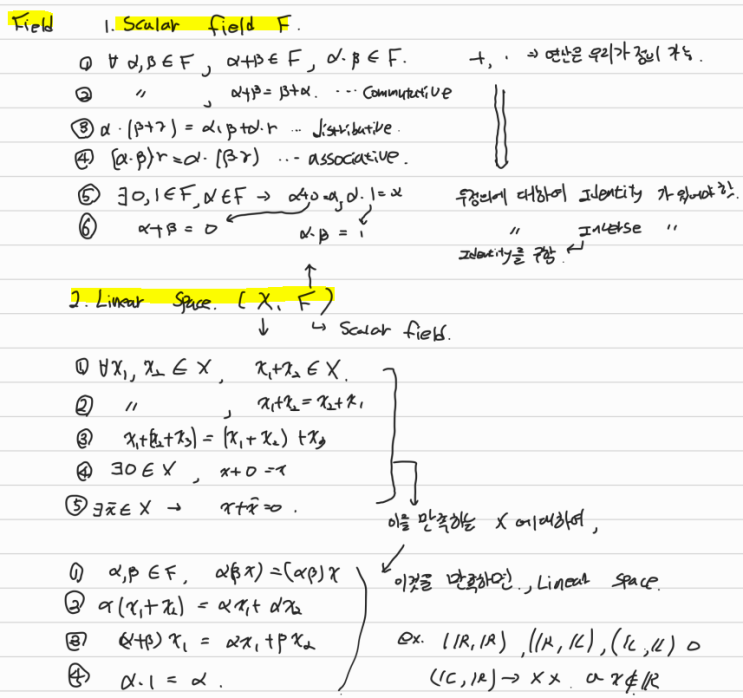 Field 1. Scalar field F.
① ∀ α,β ∈ F , α+β ∈ F , α·β ∈ F. +, · ⇒ 연산은 우리가 정의 가능.
② 〃 , α+β = β+α. ... Commutative
③ α·(β+γ) = α·β+α·r ... distributive.
④ (α·β)r = α·(βγ) ... associative.
⑤ ∃0,1∈F, α∈F → α+0=α, α·1=α 두 정의에 대하여 Identity 가 있어야 함.
⑥ α+β = 0 α·β = 1 〃 Inverse 〃
Identity를 구함.
2. Linear Space. (X, F)
↓ ↳ Scalar field.
① ∀x₁, x₂ ∈ X, x₁+x₂ ∈ X.
② 〃 , x₁+x₂ = x₂+x₁
③ x₁+(x₂+x₃) = (x₁+x₂)+x₃
④ ∃0 ∈ X , x+0 = x
⑤ ∃x̄ ∈ X → x+x̄=0 .
이를 만족하는 X 에대하여,
① α,β ∈ F, α(βx) = (αβ)x 이것을 만족하면., Linear Space.
② α(x₁+x₂) = αx₁+αx₂
③ (α+β)x₁ = αx₁+βx₂ ex. (ℝ,ℝ), (ℝ,ℂ), (ℂ,ℂ) o
④ α·1 = α . (ℂ,ℝ) → xx. αx∉ℝ